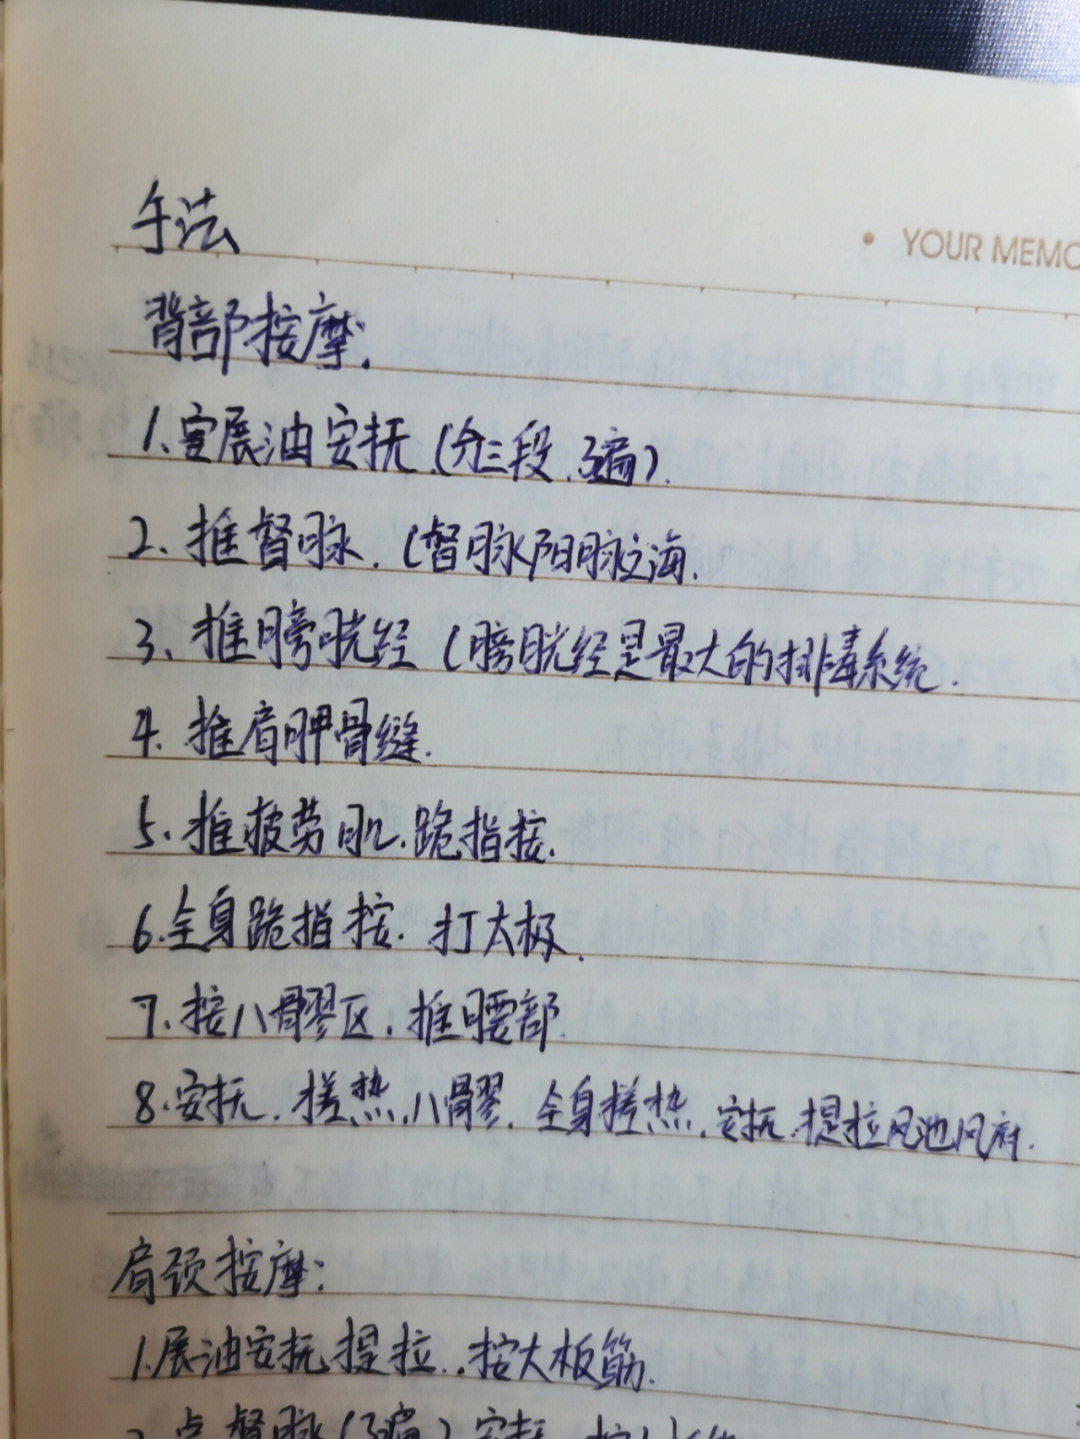 手法
• YOUR MEMO
背部按摩:
1.展油安抚.(分三段.3遍).
2、推督脉.(督脉阳脉之海.
3、推膀胱经(膀胱经是最大的排毒系统.
4.推肩胛骨缝.
5.推疲劳肌.跪指按.
6.全身跪指按.打太极.
7.按八髎区.推腰部.
8.安抚.搓热.八髎.全身搓热.安抚.提拉风池风府.
肩颈按摩:
1.展油安抚提拉..按大板筋.
2.点督脉(3遍)安抚